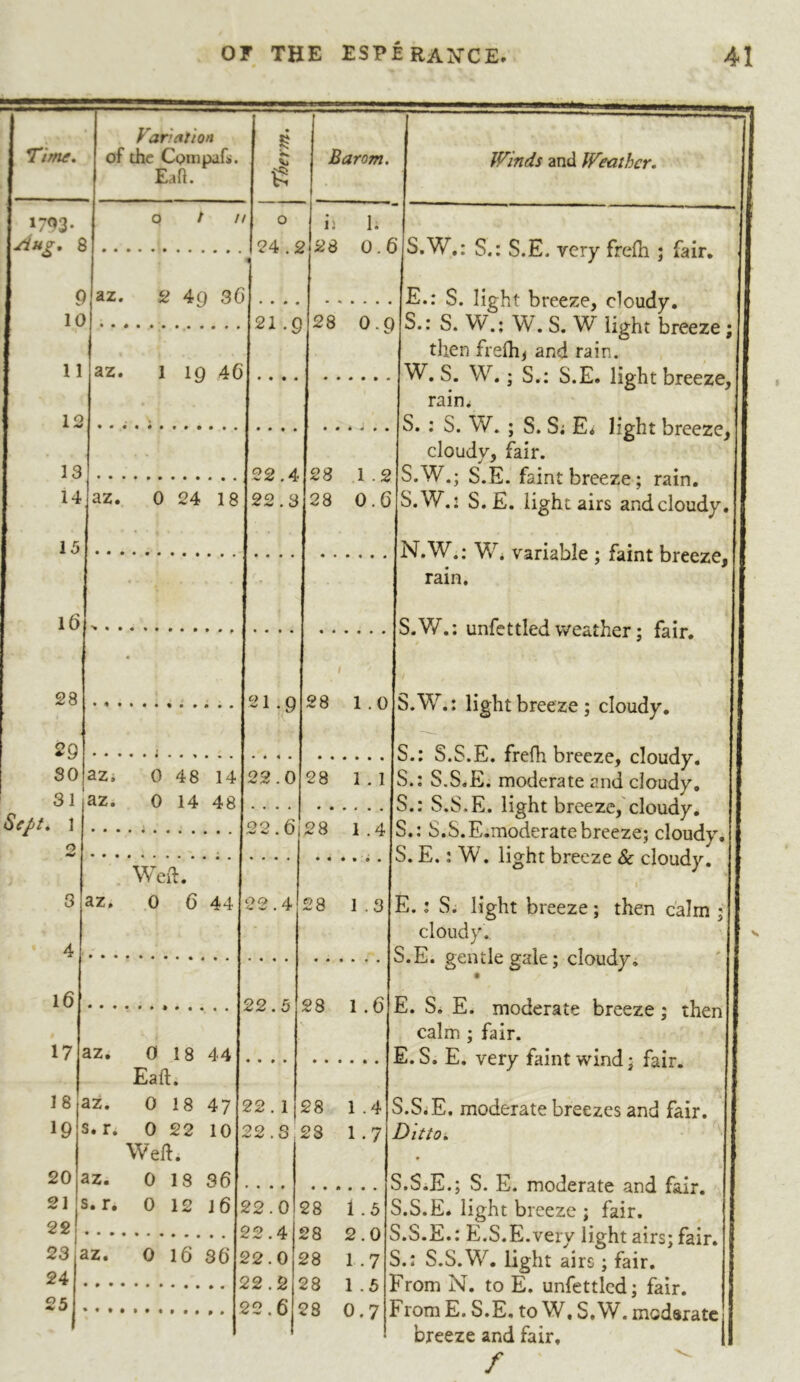 OF THE ESPÉRANCE. 41
Time. Variation of the Compaſs. Eaſt. Therm. Barom. Winds and Weather.
1793. o ′ ″ o i. l.
Aug. 8 ............ 24.2 28 0.6 S.W.: S.: S.E. very freſh ; fair.
9 az. 2 49 36 .... ...... E.: S. light breeze, cloudy.
10 ............ 21.9 28 0.9 S.: S. W.: W. S. W light breeze ;
then freſh, and rain.
11 az. 1 19 46 .... ...... W. S. W. ; S.: S.E. light breeze,
rain.
12 ............ .... ...... S. : S. W. ; S. S. E. light breeze,
cloudy, fair.
13 ............ 22.4 28 1.2 S.W.; S.E. faint breeze ; rain.
14 az. 0 24 18 22.3 28 0.6 S.W.: S. E. light airs and cloudy.
15 ............ .... ...... N.W.: W. variable ; faint breeze,
rain.
16 ............ .... ...... S.W.: unſettled weather ; fair.
28 ............ 21.9 28 1.0 S.W.: light breeze ; cloudy.
29 ............ .... ...... S.: S.S.E. freſh breeze, cloudy.
30 az. 0 48 14 22.0 28 1.1 S.: S.S.E. moderate and cloudy.
31 az. 0 14 48 .... ...... S.: S.S.E. light breeze, cloudy.
Sept. 1 ............ 22.6 28 1.4 S.: S.S.E. moderate breeze; cloudy.
2 ............ .... ...... S. E. : W. light breeze & cloudy.
Weſt.
3 az. 0 6 44 22.4 28 1.3 E. : S. light breeze ; then calm ;
cloudy.
4 ............ .... ...... S.E. gentle gale ; cloudy.
16 ............ 22.5 28 1.6 E. S. E. moderate breeze ; then
calm ; fair.
17 az. 0 18 44 .... ...... E. S. E. very faint wind ; fair.
Eaſt.
18 az. 0 18 47 22.1 28 1.4 S.S.E. moderate breezes and fair.
19 s. r. 0 22 10 22.3 28 1.7 Ditto.
Weſt.
20 az. 0 18 36 .... ...... S.S.E.; S. E. moderate and fair.
21 s. r. 0 12 16 22.0 28 1.5 S.S.E. light breeze ; fair.
22 ............ 22.4 28 2.0 S.S.E.: E.S.E. very light airs; fair.
23 az. 0 16 36 22.0 28 1.7 S.: S.S.W. light airs ; fair.
24 ............ 22.2 28 1.5 From N. to E. unſettled ; fair.
25 ............ 22.6 28 0.7 From E. S.E. to W. S.W. moderate
breeze and fair.
f